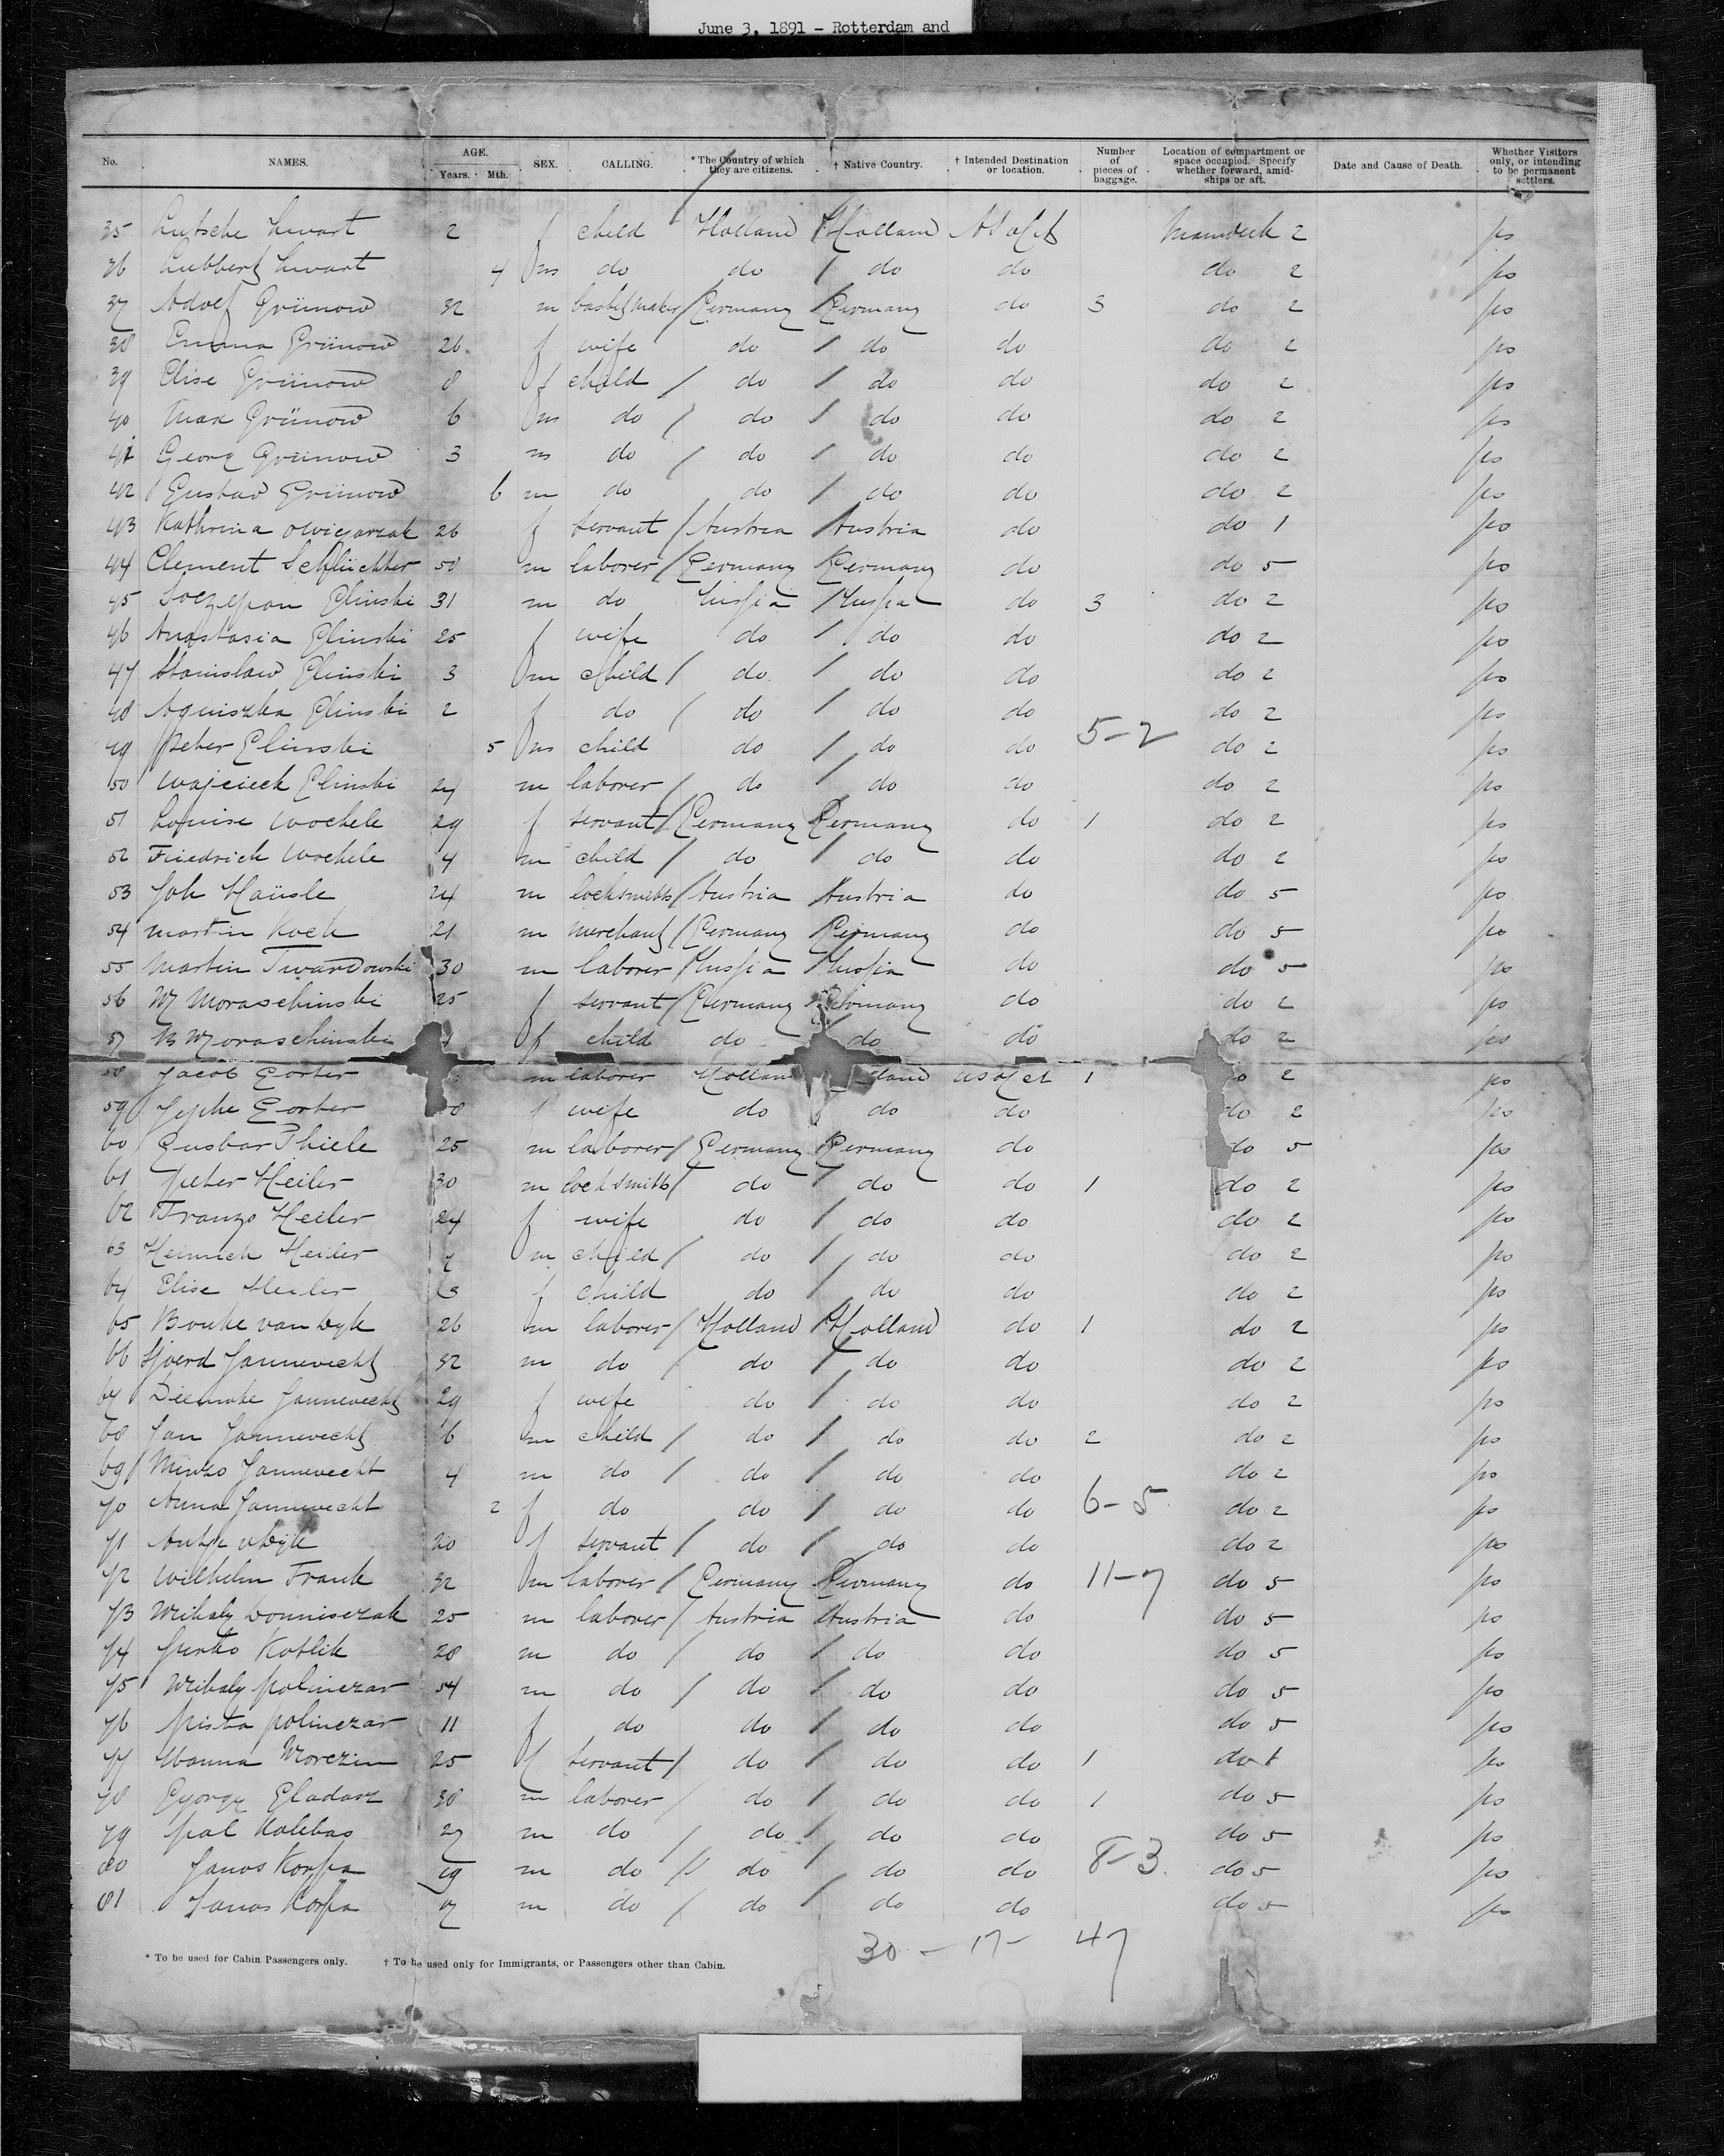 June 3, 1891 - Rotterdam and
No. NAMES. AGE. Years. Mth. SEX. CALLING. * The Country of which they are citizens. † Native Country. † Intended Destination or location. Number of pieces of baggage. Location of compartment or space occupied. Specify whether forward, amidships or aft. Date and Cause of Death. Whether Visitors only, or intending to be permanent settlers.
35 2 f child Holland Holland 2 ps
36 4 m do do do do do 2 ps
37 Adolf Grünow 32 m Germany Germany do 3 do 2 ps
38 Emma Grünow 26 f wife do do do do 2 ps
39 Elise Grünow 8 f child do do do do 2 ps
40 Max Grünow 6 m do do do do do 2 ps
41 Georg Grünow 3 m do do do do do 2 ps
42 Gustav Grünow 6 m do do do do do 2 ps
43 Kathrina 26 f servant Austria Austria do do 1 ps
44 Clement 50 m laborer Germany Germany do do 5 ps
45 Glinski 31 m do Russia Russia do 3 do 2 ps
46 Anastasia Glinski 25 f wife do do do do 2 ps
47 Stanislaw Glinski 3 m child do do do do 2 ps
48 Agniszka Glinski 2 f do do do do do 2 ps
49 Peter Glinski 5 m child do do do 5-2 do 2 ps
50 Wojcieck Glinski 24 m laborer do do do do 2 ps
51 Louise Wochele 29 f servant Germany Germany do 1 do 2 ps
52 Friedrich Wochele 4 m child do do do do 2 ps
53 Joh Haüsle 24 m locksmith Austria Austria do do 5 ps
54 Martin Koch 21 m merchant Germany Germany do do 5 ps
55 Martin Twardowski 30 m laborer Russia Russia do do 5 ps
56 M Moraschinski 25 f servant Germany Germany do do 2 ps
57 Moraschinski f child do do do do 2 ps
58 Jacob Gorter m laborer Holland 1 2 ps
59 Gorter f wife do do do do 2 ps
60 Gustav Thiele 25 m laborer Germany Germany do do 5 ps
61 Peter Heiler 30 m locksmith do do do 1 do 2 ps
62 Heiler 24 f wife do do do do 2 ps
63 Heinrich Heiler m child do do do do 2 ps
64 Elise Heiler f child do do do do 2 ps
65 Bouke van Dyk 26 m laborer Holland Holland do 1 do 2 ps
66 Sjoerd Jannevecht 32 m do do do do do 2 ps
67 Jannevecht 29 f wife do do do do 2 ps
68 Jan Jannevecht 6 m child do do do 2 do 2 ps
69 Jannevecht 4 m do do do do do 2 ps
70 Anna Jannevecht 2 f do do do do 6-5 do 2 ps
71 20 f servant do do do do 2 ps
72 Wilhelm Frank 32 m laborer Germany Germany do 11-7 do 5 ps
73 25 m laborer Austria Austria do do 5 ps
74 Kotlik 28 m do do do do do 5 ps
75 54 m do do do do do 5 ps
76 11 f do do do do do 5 ps
77 25 f servant do do do 1 do 1 ps
78 38 m laborer do do do 1 do 5 ps
79 Pal 27 m do do do do do 5 ps
80 Janos 19 m do do do do 8-3 do 5 ps
81 Janos m do do do do do 5 ps
30 - 17 - 47
* To be used for Cabin Passengers only. † To be used only for Immigrants, or Passengers other than Cabin.